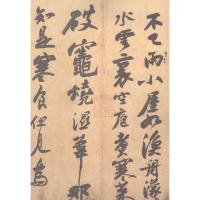 不已雨小屋如漁舟濛
水雲裏空庖煮寒菜
破竈燒溼葦那
知是寒食但見烏